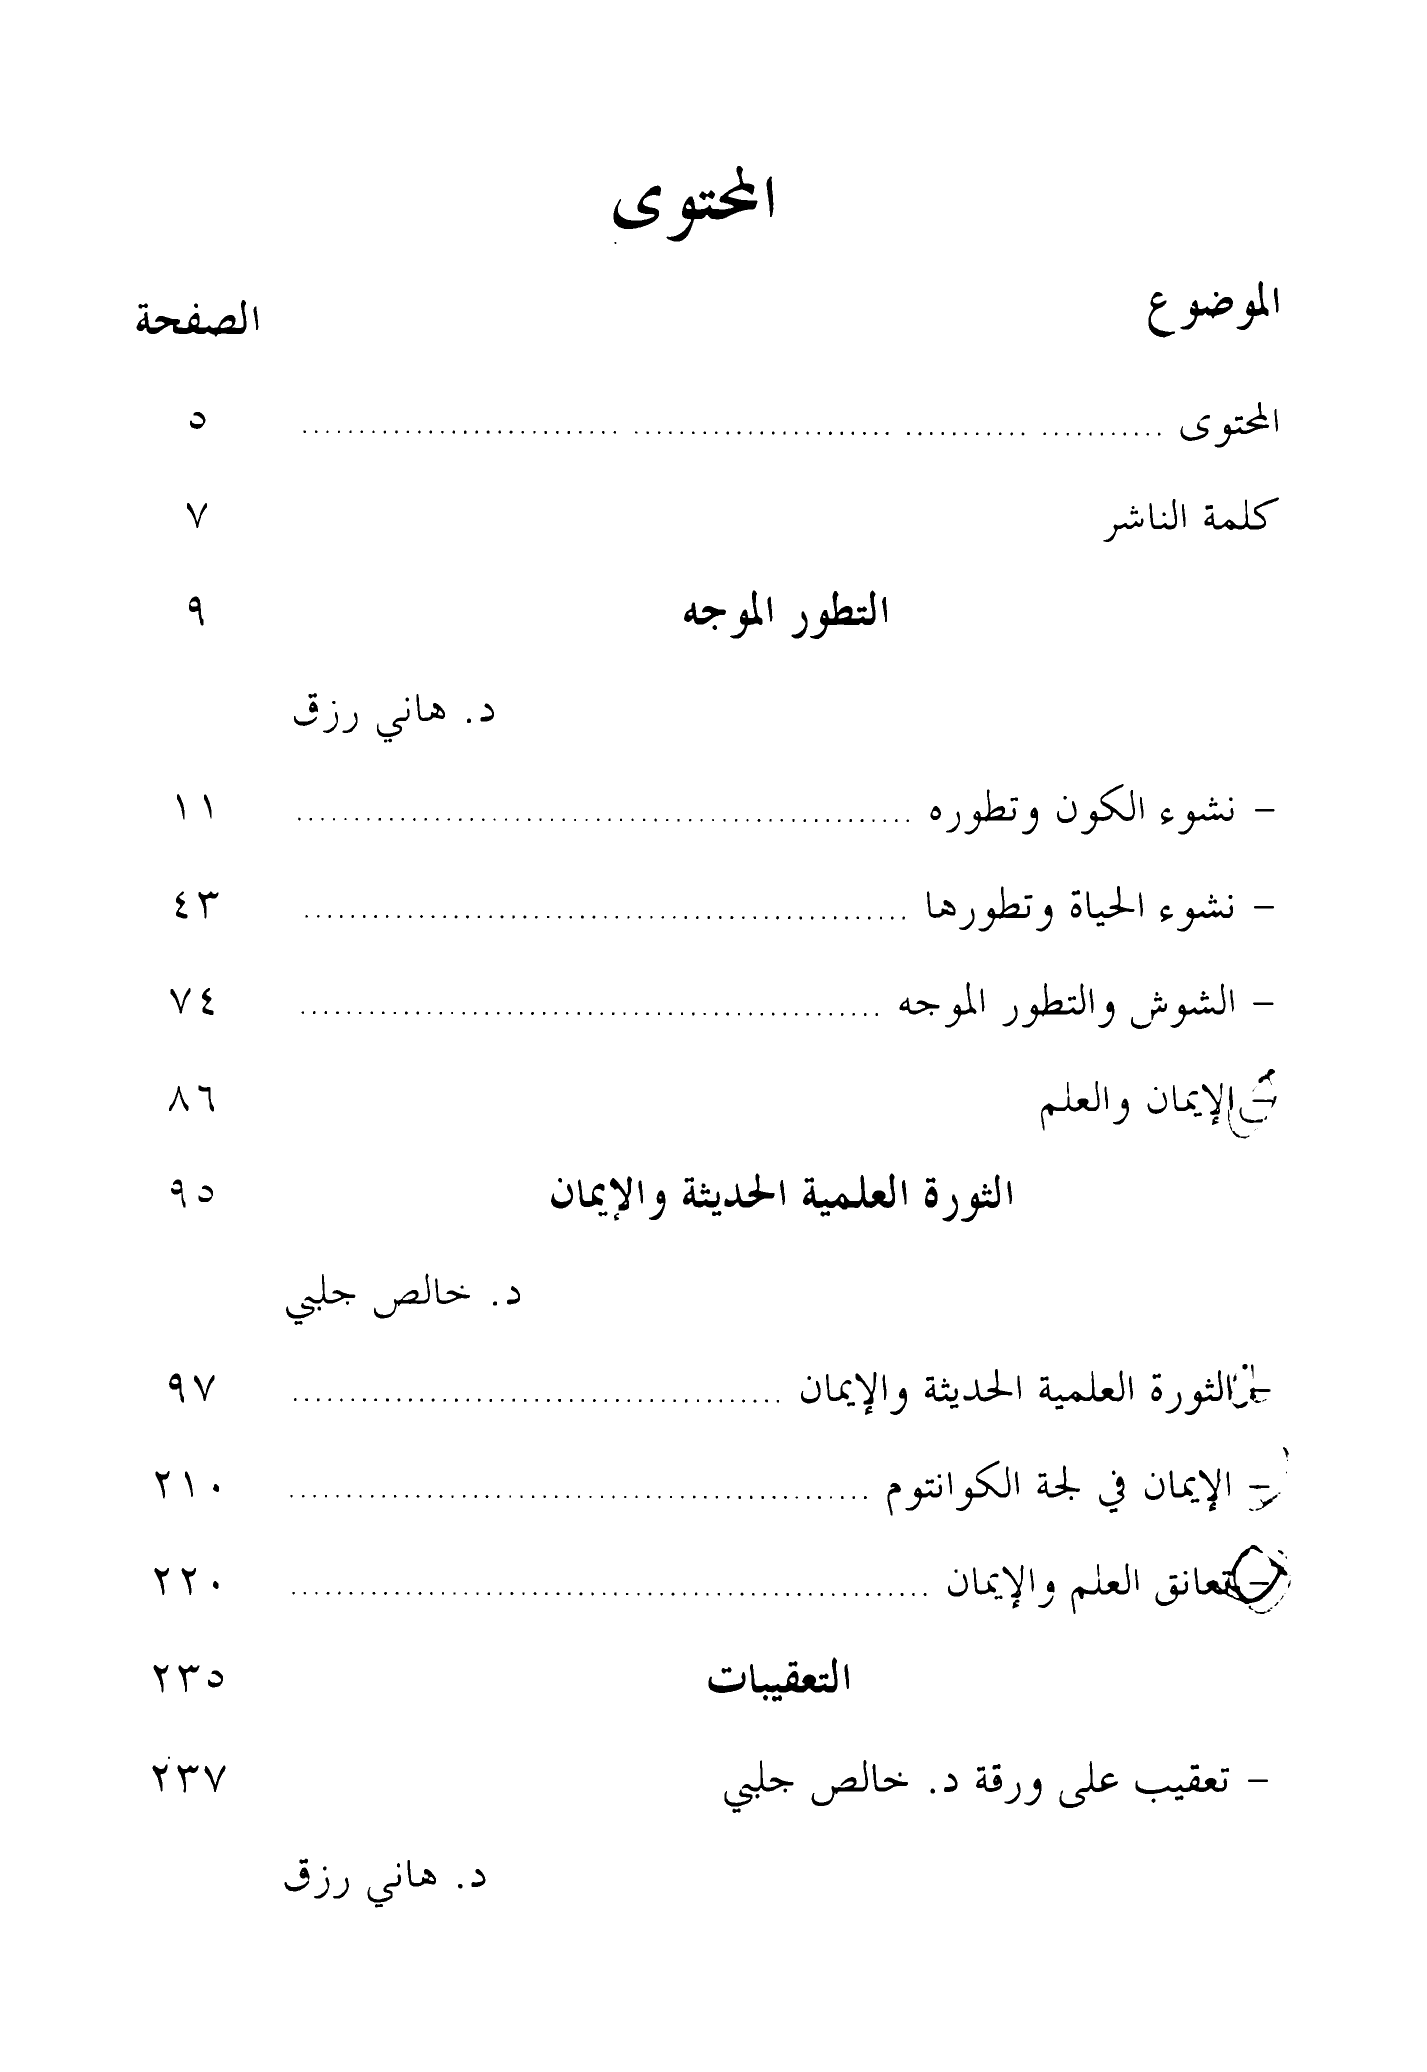 المحتوى
الموضوع الصفحة
المحتوى ........................ ٥
كلمة الناشر ٧
التطور الموجه ٩
د. هاني رزق
- نشوء الكون وتطوره ........................ ١١
- نشوء الحياة وتطورها ........................ ٤٣
- الشوش والتطور الموجه ........................ ٧٤
- الإيمان والعلم ٨٦
الثورة العلمية الحديثة والإيمان ٩٥
د. خالص جلبي
- الثورة العلمية الحديثة والإيمان ........................ ٩٧
- الإيمان في لجة الكوانتوم ........................ ٢١٠
- تعانق العلم والإيمان ........................ ٢٢٠
التعقيبات ٢٣٥
- تعقيب على ورقة د. خالص جلبي ٢٣٧
د. هاني رزق